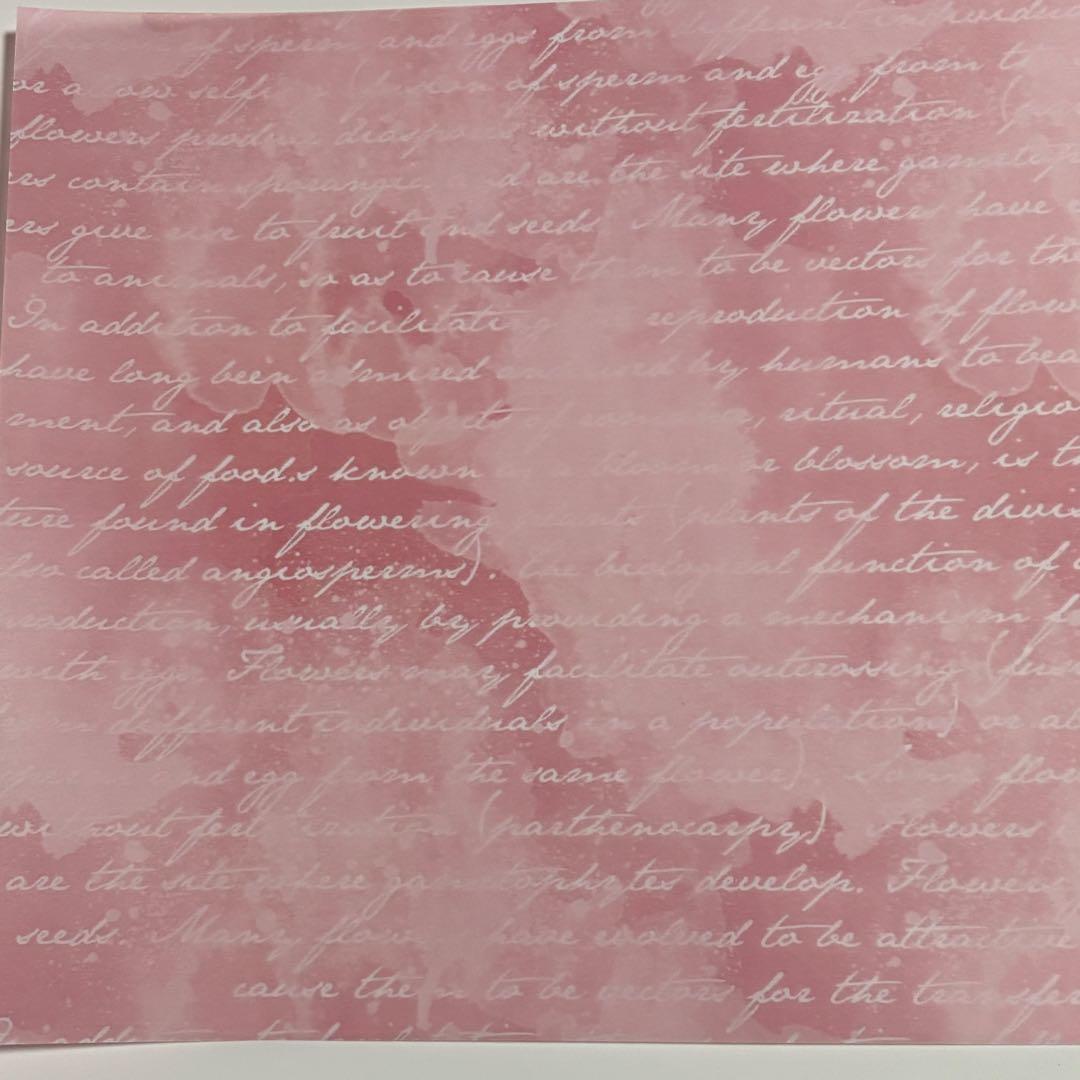 of sperm and eggs from different individu
or allow selfi (fusion of sperm and egg from t
flowers produce diaspores without fertilization (
rs contain sporangia and are the site where gametop
ers give rise to fruit and seeds. Many flowers have
to animals, so as to cause them to be vectors for the
In addition to facilitating the reproduction of flow
have long been admired and used by humans to bea
ment, and also as objects of romance, ritual, religio
source of food.s known as a bloom or blossom, is th
ture found in flowering plants (plants of the divis
lso called angiosperms). The biological function of a
roduction, usually by providing a mechanism f
with eggs. Flowers may facilitate outcrossing (fus
from different individuals in a population) or al
sperm and egg from the same flower). Some flow
without fertilization (parthenocarpy). Flowers
are the site where gametophytes develop. Flowers
seeds. Many flowers have evolved to be attractive
cause them to be vectors for the transfer